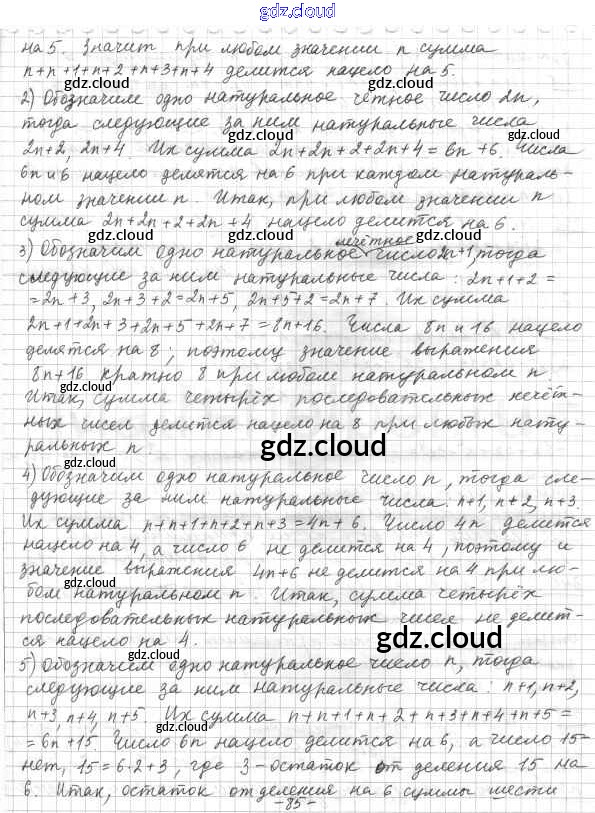 gdz.cloud
gdz.cloud
на 5. Значит при любом значении n сумма
n+n+1+n+2+n+3+n+4 делится нацело на 5.
gdz.cloud gdz.cloud
2) Обозначим одно натуральное чётное число 2n,
тогда следующие за ним натуральные числа
gdz.cloud gdz.cloud
2n+2, 2n+4. Их сумма 2n+2n+2+2n+4=6n+6. Числа
6n и 6 нацело делятся на 6 при каждом натураль-
ном значении n. Итак, при любом значении n
gdz.cloud gdz.cloud
сумма 2n+2n+2+2n+4 нацело делится на 6.
3) Обозначим одно натуральное нечётное число 2n+1, тогда
gdz.cloud gdz.cloud
следующие за ним натуральные числа: 2n+1+2=
=2n+3, 2n+3+2=2n+5, 2n+5+2=2n+7. Их сумма
gdz.cloud gdz.cloud
2n+1+2n+3+2n+5+2n+7=8n+16. Числа 8n и 16 нацело
делятся на 8; поэтому значение выражения
gdz.cloud gdz.cloud
8n+16 кратно 8 при любом натуральном n.
Итак, сумма четырёх последовательных нечёт-
ных чисел делится нацело на 8 при любых нату-
ральных n.
gdz.cloud gdz.cloud
4) Обозначим одно натуральное число n, тогда сле-
дующие за ним натуральные числа: n+1, n+2, n+3.
gdz.cloud gdz.cloud
Их сумма n+n+1+n+2+n+3=4n+6. Число 4n делится
нацело на 4, а число 6 не делится на 4, поэтому и
gdz.cloud gdz.cloud
значение выражения 4n+6 не делится на 4 при лю-
бом натуральном n. Итак, сумма четырёх
последовательных натуральных чисел не делит-
ся нацело на 4.
gdz.cloud gdz.cloud
5) Обозначим одно натуральное число n, тогда
следующие за ним натуральные числа: n+1, n+2,
gdz.cloud gdz.cloud
n+3, n+4, n+5. Их сумма n+n+1+n+2+n+3+n+4+n+5=
=6n+15. Число 6n нацело делится на 6, а число 15-
gdz.cloud gdz.cloud
нет, 15=6·2+3, где 3-остаток от деления 15 на
6. Итак, остаток от деления на 6 суммы шести
-85-